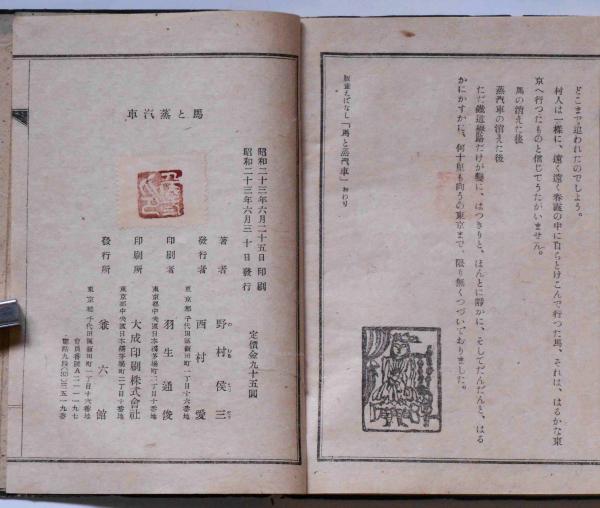 どこまで追われたのでしよう。
村人は一樣に、遠く遠く春霞の中に自らとけこんで行つた馬、それは、はるかな東
京へ行つたものと信じてうたがいません。
馬の消えた後
蒸汽車の消えた後
ただ鐵道線路だけが鑿に、はつきりと、ほんとに靜かに、そしてだんだんと、はる
かにかすかに、何十里も向うの東京まで、限り無くつづいておりました。
版畫えばなし「馬と蒸汽車」おわり
馬と蒸汽車
昭和二十三年六月二十五日 印刷
昭和二十三年六月三十日 發行
定價金九十五圓
著者 野村俟三
發行者 西村愛
東京都千代田區飯田町一丁目十六番地
印刷者 羽生通俊
東京都中央區日本橋茅場町二丁目十番地
印刷所 大成印刷株式會社
東京都中央區日本橋茅場町二丁目十番地
發行所 六館
東京都千代田區飯田町一丁目十六番地
會員番號A二一一一九七
電話九段(33)三五一九番